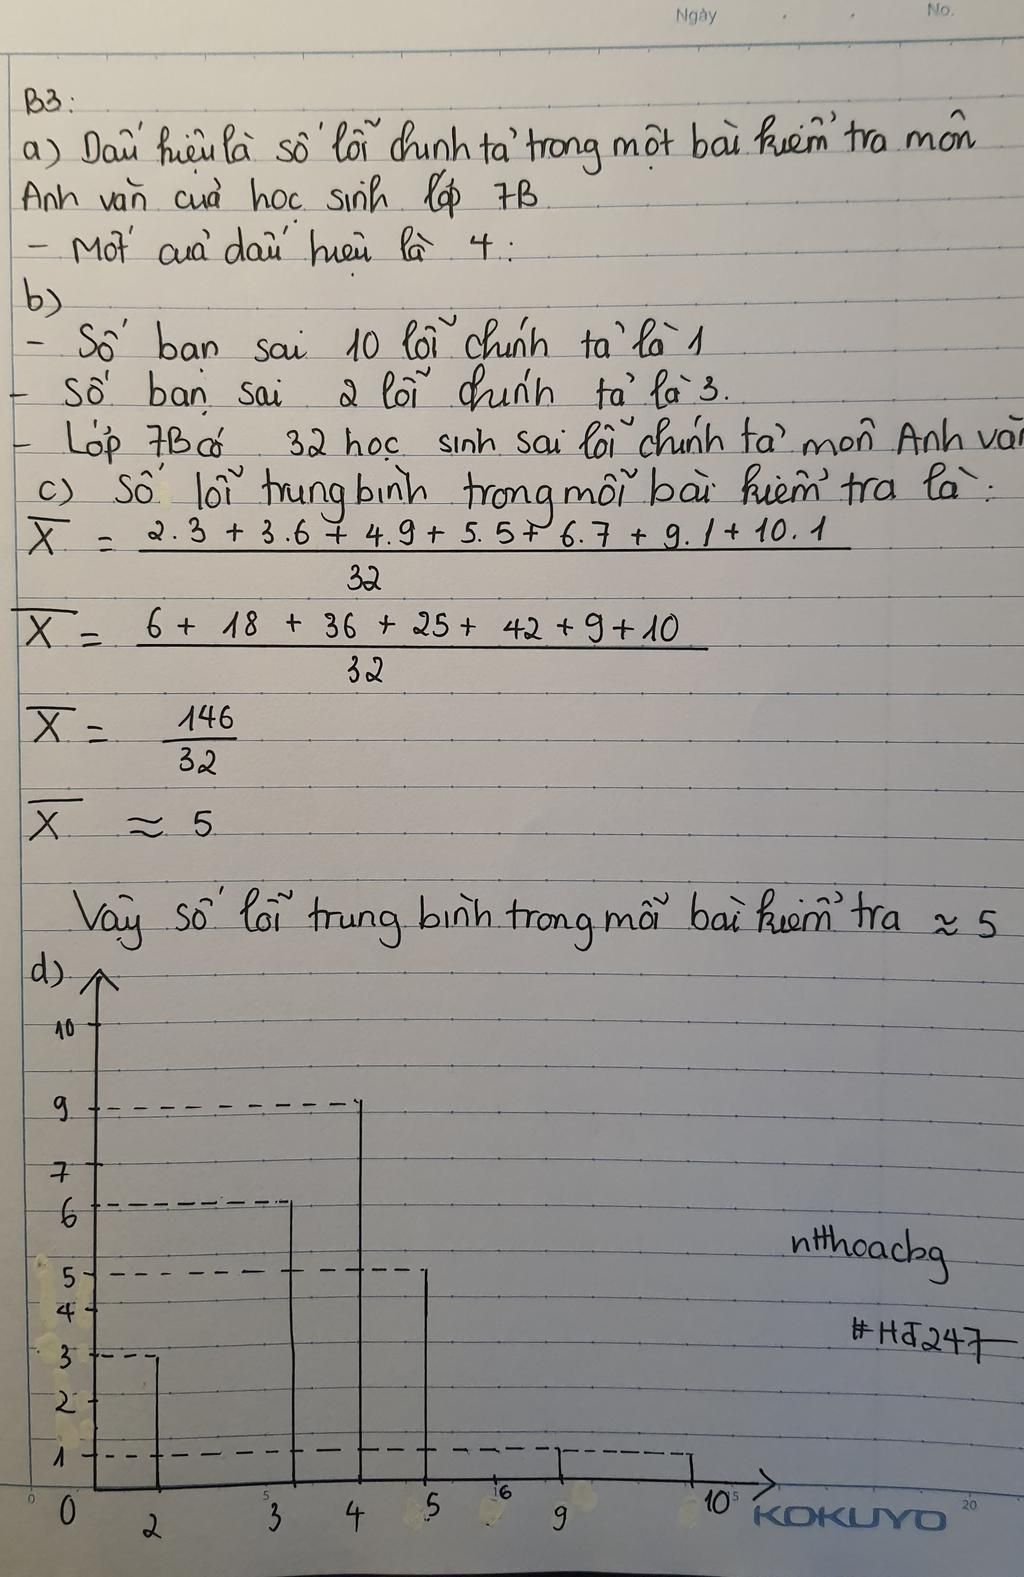 Ngày No.
B3:
a) Dấu hiệu là số lỗi chính tả trong một bài kiểm tra môn
Anh văn của học sinh lớp 7B
- Mốt của dấu hiệu là 4.
b)
- Số bạn sai 10 lỗi chính tả là 1
- Số bạn sai 2 lỗi chính tả là 3.
- Lớp 7B có 32 học sinh sai lỗi chính tả môn Anh văn
c) Số lỗi trung bình trong mỗi bài kiểm tra là:
X̅ = 2.3 + 3.6 + 4.9 + 5.5 + 6.7 + 9.1 + 10.1
32
X̅ = 6 + 18 + 36 + 25 + 42 + 9 + 10
32
X̅ = 146
32
X̅ ≈ 5
Vậy số lỗi trung bình trong mỗi bài kiểm tra ≈ 5
d)
10
9
7
6
5
4
3
2
1
0 2 3 4 5 6 9 10
nthhoacbg
#HĐ247
0 5 15 20
KOKUYO